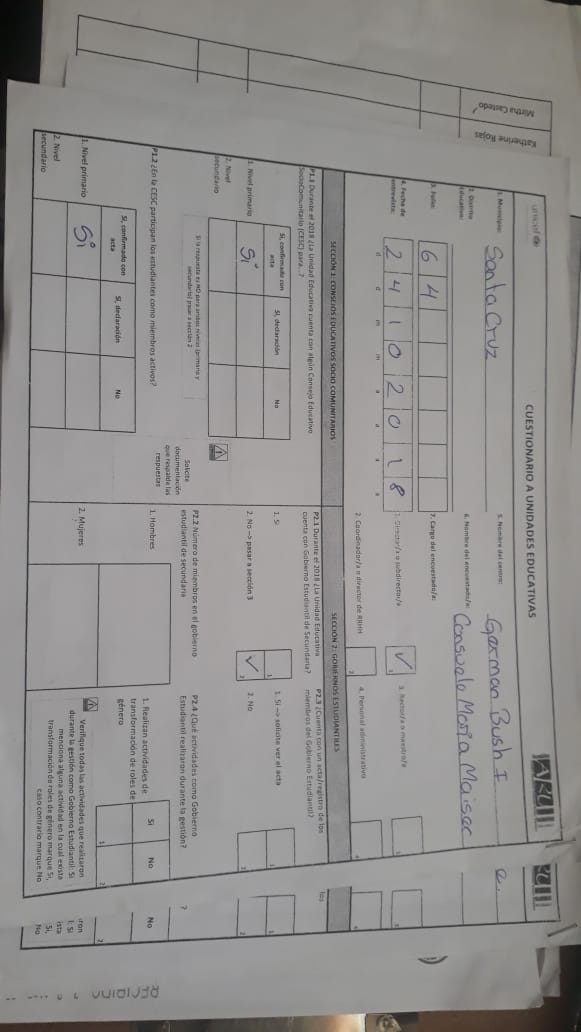 Mirtha Castedo
Katherine Rojas
unicef
CUESTIONARIO A UNIDADES EDUCATIVAS
1. Municipio: Santa Cruz
2. Distrito Educativo:
3. Folio: 6 4
4. Fecha de entrevista: 2 4 1 0 2 0 1 8
d d m m a a a a
5. Nombre del centro: German Bush I
6. Nombre del encuestado/a: Consuelo Mejia
7. Cargo del encuestado/a:
1. Director/a o subdirector/a ✓ 1
2. Coordinador/a o director de RRHH 2
3. Rector/a o maestro/a 3
4. Personal administrativo 4
SECCIÓN 1: CONSEJOS EDUCATIVOS SOCIO COMUNITARIOS
P1.1 Durante el 2018 ¿La Unidad Educativa cuenta con algún Consejo Educativo
SocioComunitario (CESC) para...?
Si, confirmado con acta
Si, declaración
No
1. Nivel primario Si
2. Nivel secundario
Si la respuesta es NO para ambos niveles (primaria y
secundario) pasar a sección 2
Solicite
documentación
que respalde las
respuestas
P1.2 ¿En la CESC participan los estudiantes como miembros activos?
Si, confirmado con acta
Si, declaración
No
1. Nivel primario Si
2. Nivel secundario
SECCIÓN 2: GOBIERNOS ESTUDIANTILES
P2.1 Durante el 2018 ¿La Unidad Educativa
cuenta con Gobierno Estudiantil de Secundaria?
1. Si 1
2. No --> pasar a sección 3 ✓ 2
P2.2 Número de miembros en el gobierno
estudiantil de secundaria
1. Hombres
2. Mujeres
P2.3 ¿Cuenta con un acta/registro de los
miembros del Gobierno Estudiantil?
1. Si --> solicite ver el acta 1
2. No 2
P2.4 ¿Qué actividades como Gobierno
Estudiantil realizaron durante la gestión?
Si No
1. Realizan actividades de
transformación de roles de
género 1 2
Verifique todas las actividades que realizaron
durante la gestión como Gobierno Estudiantil: Si
menciona alguna actividad en la cual exista
transformación de roles de género marque Si,
caso contrario marque No
los
?
No
RECIBIDO